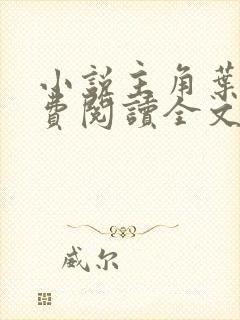 小說主角葉
費閱讀全文
威尔